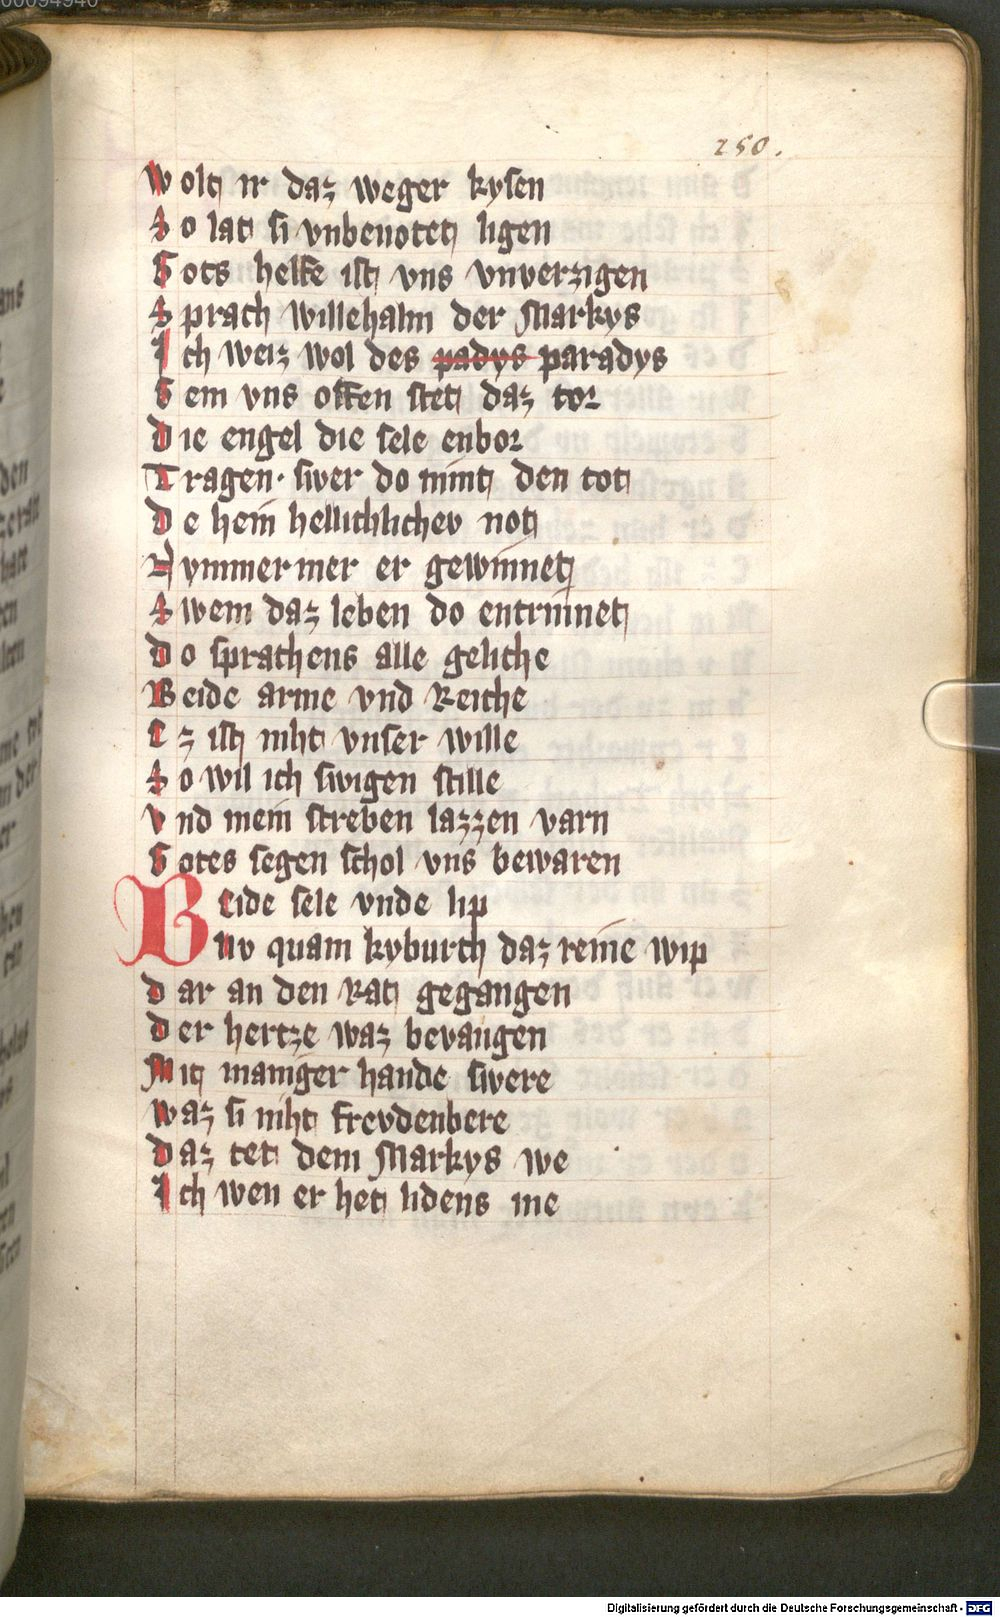 00094940
250.
Wolt ir daz weger kysen
So lat si vnbenotet ligen
Gots helfe ist vns vnverzigen
Sprach willehalm der Markys
Ich weiz wol des padys paradys
Gem vns offen stet daz tor
Die engel die sele enbor
Tragen. swer do nimt den tot
De hein hellichlicher not
Nymmermer er gewinnet
Swem daz leben do entrinnet
Do sprachens alle geliche
Beide arme vnd Reiche
Ez ist niht vnser wille
So wil ich swigen stille
Vnd mein streben lazzen varn
Gotes segen schol vns bewaren
Beide sele vnde lip
Nv quam kyburch daz reine wip
Dar an den Rat gegangen
Der hertze waz bevangen
Mit maniger hande swere
Waz si niht frevdenbere
Daz tet dem Markys we
Ich wen er het lidens me
Digitalisierung gefördert durch die Deutsche Forschungsgemeinschaft - DFG